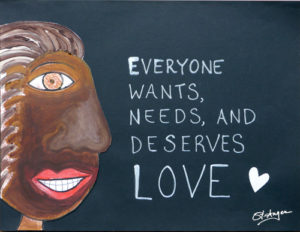 EVERYONE
WANTS,
NEEDS, AND
DESERVES
LOVE